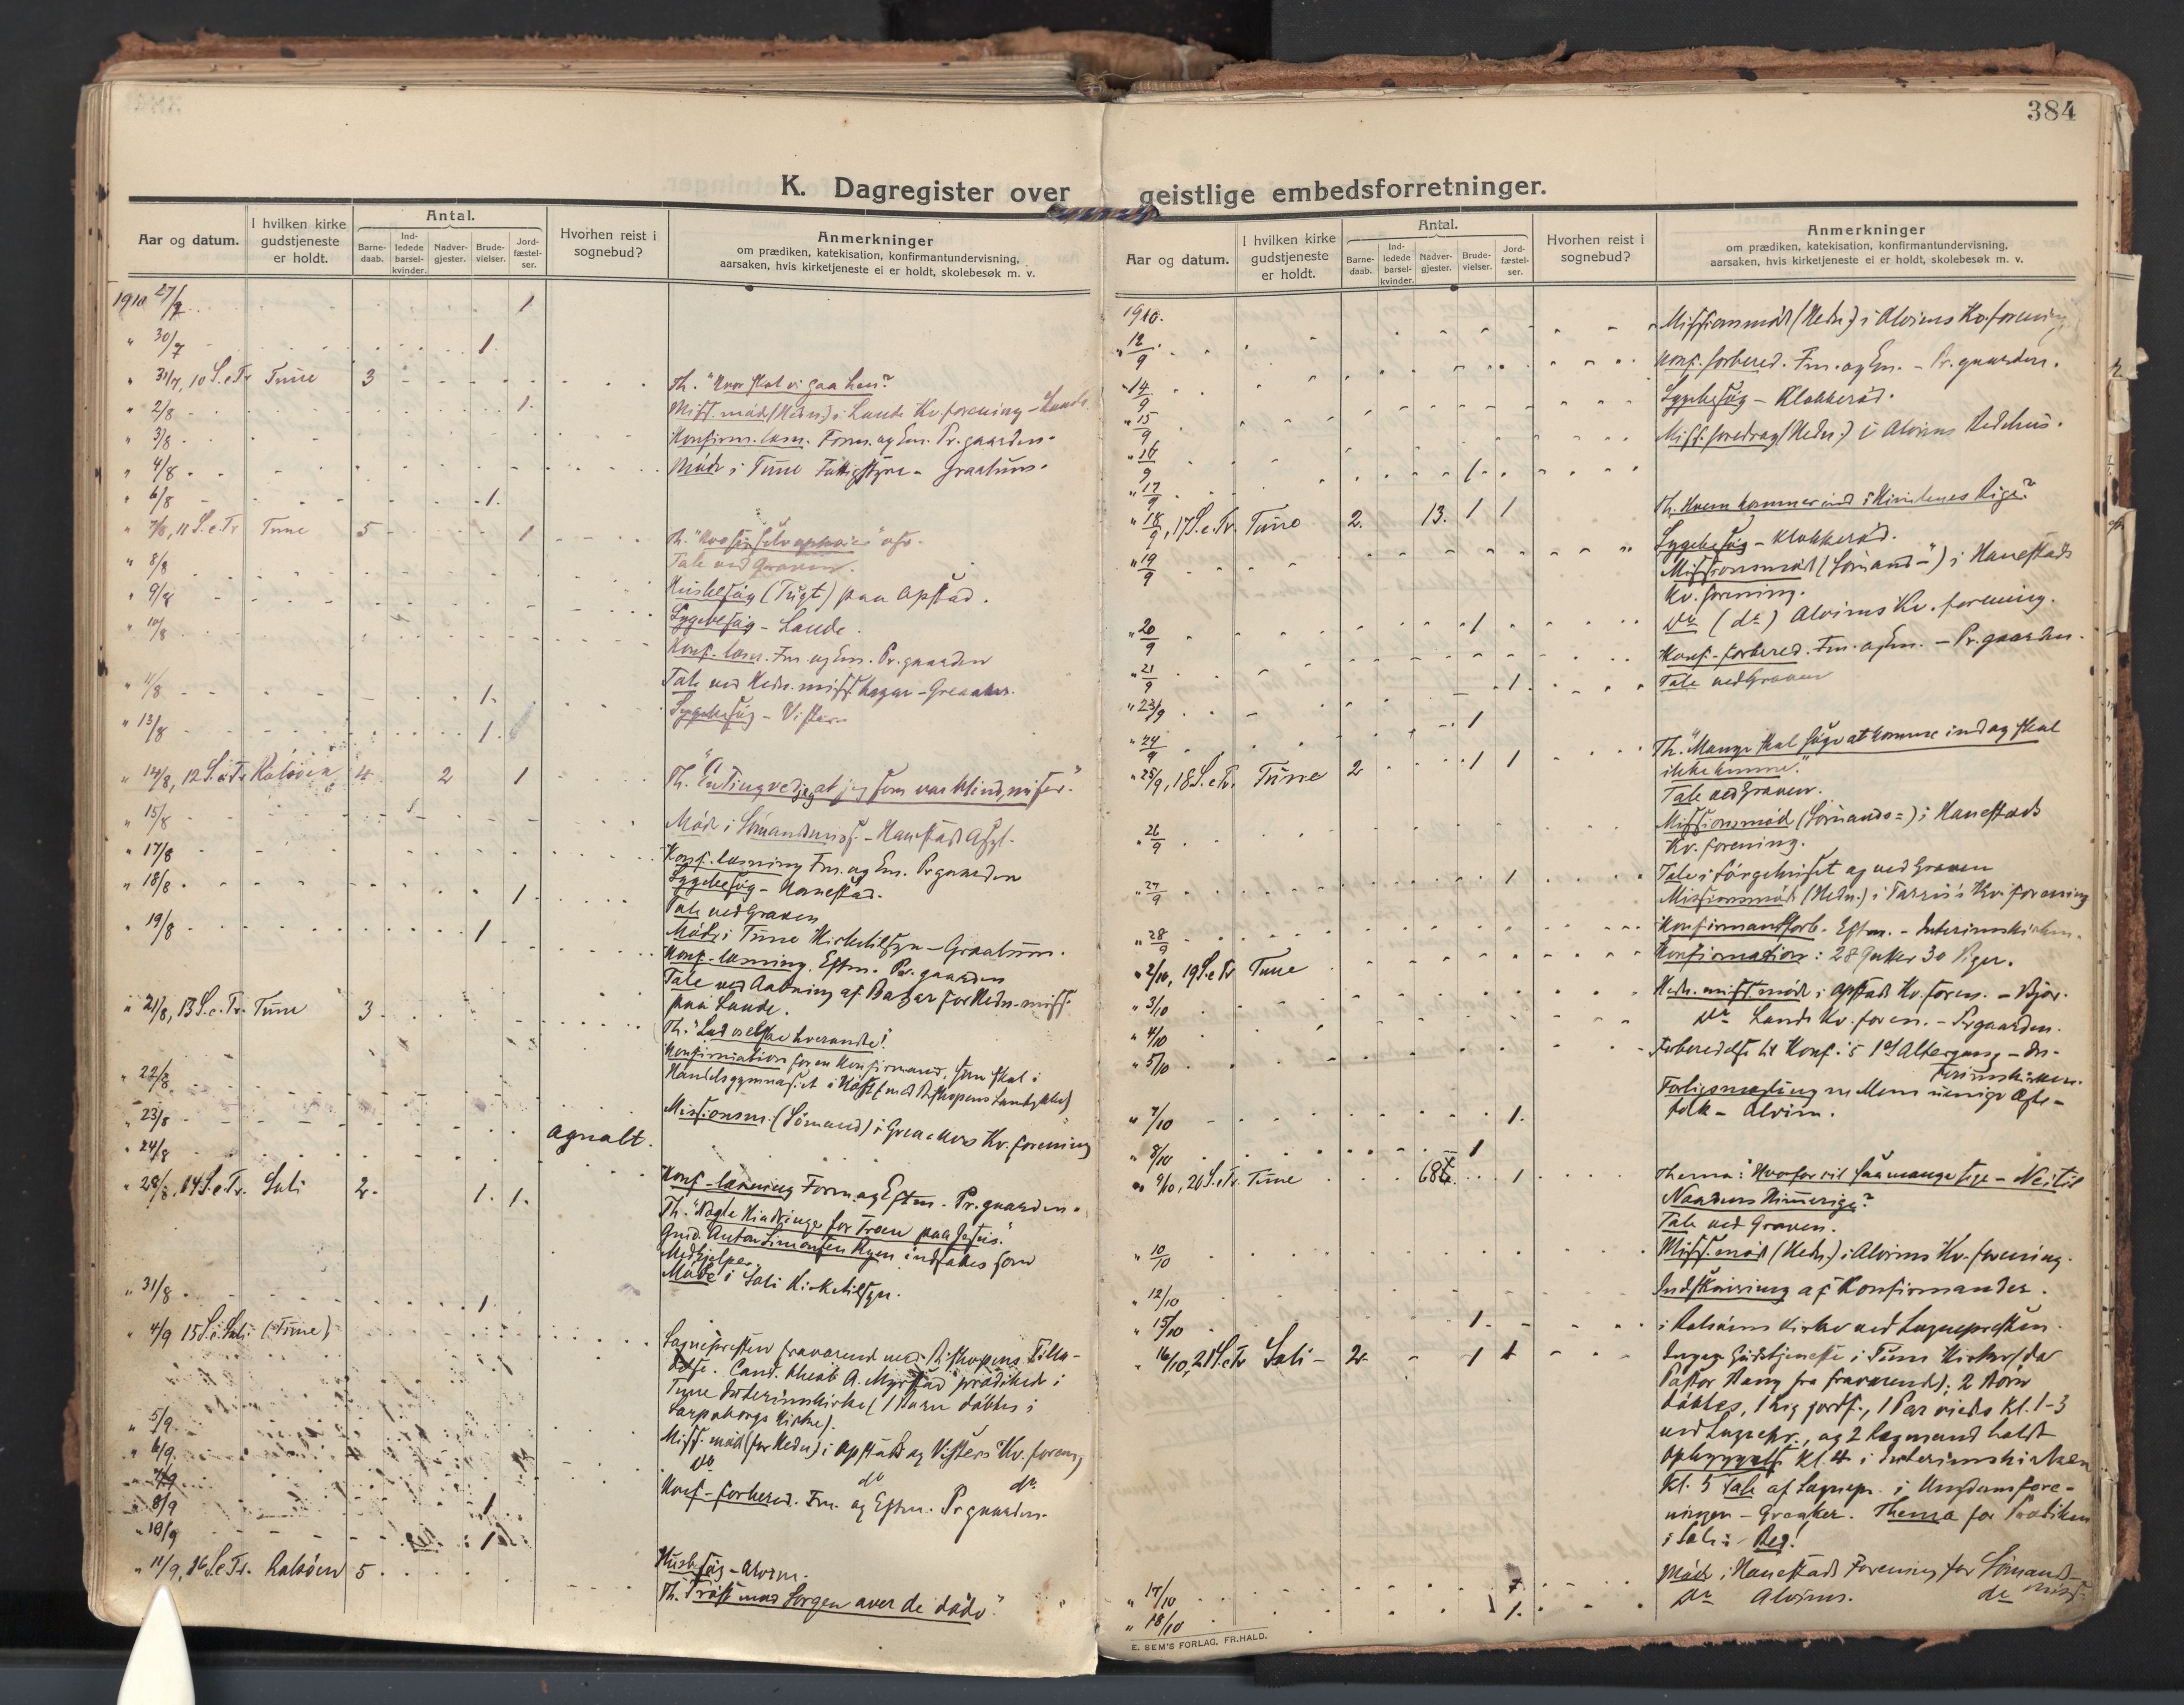 384
K. Dagregister over geistlige embedsforretninger.
Aar og datum.
I hvilken kirke gudstjeneste er holdt.
Antal.
Barne-daab.
Ind-ledede barsel-kvinder.
Nadver-gjester.
Brude-vielser.
Jord-fæstel-ser.
Hvorhen reist i sognebud?
Anmerkninger
om prædiken, katekisation, konfirmantundervisning,
aarsaken, hvis kirketjeneste ei er holdt, skolebesøk m. v.
1910 27/7 1
" 30/7 1
" 31/7, 10 S.e.Tr Tune 3 Th. "Hvor skal vi gaa hen?
" 2/8 1. Miss.møde (Hedn.) i Lande Kv.forening - Lande
" 3/8 Konfirm. læsn. Form. og Em. Pr.gaarden.
" 4/8 Møde i Tune Fattigstyre - Graalum.
" 6/8 1.
" 7/8, 11 S.e.Tr Tune 5 1
Tale ved Graven.
" 8/8 Husbesøg (Tugt) paa Opstad.
" 9/8 Sygebesøg - Lande.
" 10/8 Konf. læsn. Fm. og Em. Pr.gaarden
Tale ved Hedn. miss. bazar - Greaaker.
" 11/8 1. Sygebesøg - Visteren
" 13/8 1.
" 14/8, 12 S.e.Tr Rolsøen 4 2 1 Th. "En Ting ved jeg, at jeg som var blind, nu ser."
" 15/8 Møde i Sømandsmiss. - Hanestad Asyl.
" 17/8 Konf. læsning Fm. og Em. Prgaarden
" 18/8 1. Sygebesøg - Hanestad.
Tale ved Graven
" 19/8 1 Møde i Tune Kirketilsyn - Graalum.
Konf. læsning. Eftm. Pr. gaarden
Tale ved Aabning af Bazar for Hedn. miss.
paa Lande.
" 21/8, 13 S.e.Tr. Tune 3 Th. "Lad os elske hverandre!
Konfirmation for en Konfirmand, som skal i
Handelsgymnasiet i Høst (med Biskopens Samtykke)
" 22/8 Missionsm. (Sømand) i Greaakers Kv. forening
" 23/8
" 24/8 Agnalt. Konf. læsning Form. og Eftm. Pr.gaarden.
" 28/8, 14 S.e.Tr. Soli 2. 1. 1. Th. "Nogle Hindringe for Troen paa Jesus."
Grd. Anton Simonsen Ryen indsattes som
Medhjelper.
Møde i Soli Kirketilsyn.
" 31/8 1.
" 4/9 15 S.e. Soli (Tune) Sognepresten fraværend med Biskopens Tilla-
delse. Cand. theol. A. Myrstad prædiked i
Tune Interimskirke (1 Barn døbtes i
Sarpsborgs Kirke).
" 5/9 Miss. møde (for Hedn.) i Opstads og Visters Kv. foreng
" 6/9 do do do
" 7/9 Konf.-forbered. Fm. og Eftm. Pr.gaarden.
" 8/9 1
" 10/9 1 Husbesøg - Alvim.
" 11/9, 16 S.e.Tr. Rolsøen 5 Th. "Trøst mod Sorgen over de døde."
1910. Missionsmøde (Hedn.) i Alvims Kv.forening
" 12/9
Konf. forbered. Fm. og Em. - Pr. gaarden.
" 14/9 Sygebesøg - Klokkerød.
" 15/9 Miss. foredrag (Hedn.) i Alvims Bedehus.
" 16/9 1.
" 17/9
" 18/9, 17 S.e.Tr. Tune 2. 13. 1 1 Th. Hvem kommer ind i Himlenes Rige?
Sygebesøg - Klokkerød.
" 19/9 Missionsmøde (Sømand-") i Hanestads
Kv. forening.
" 20/9 1 do (do) Alvims Kv. forening.
" 21/9 Konf.-forbered. Fm. og Em. - Pr. gaarden.
" 23/9 1. Tale ved Graven
" 24/9 1
" 25/9, 18 S.e.Tr. Tune 2 1 1 Th. "Mange skal søge at komme ind og skal
ikke kunne."
Tale ved Graven.
" 26/9 Missionsmøde (Sømands-) i Hanestads
Kv. forening.
" 27/9 1 Tale i Sørgehuset og ved Graven
Missionsmøde (Hedn.) i Kv. forening
" 28/9 Konfirmantforb. Eftm. - Interimskirken.
" 2/10, 19 S.e.Tr Tune Konfirmation: 28 Gutter 30 Piger.
" 3/10 Hedn. miss. møde i Opstads Kv. foren. - Bjør.
" 4/10 do Lande Kv. foren. - Prgaarden.
" 5/10 Forberedelse til Konf.'s 1ste Altergang - In-
terimskirken.
" 7/10 1. Forligsmægling mellem uenige Ægte-
folk - Alvim.
" 8/10 1
" 9/10, 20 S.e.Tr. Tune 68 1 Thema: Hvorfor vil saa mange sige - Nei til
Naadens Himmerige?
Tale ved Graven.
" 10/10 Miss. møde (Hedn.) i Alvims Kv. forening.
" 12/10 Indskrivning af Konfirmander.
" 15/10 1. i Rolsøens Kirke ved Sognepresten.
" 16/10, 21 S.e.Tr Soli - 2 1 1 Ingen Gudstjeneste i Tune Kirke (da
Pastor Haug fra fraværende): 2 Børn
døbtes, 1 Lig jordf., 1 Par viedes Kl. 1-3
ved Sognepr., og 2 Lægmænd holdt
Opbyggelse Kl. 4 i Interimskirken
Kl. 5 Tale af Sognepr. i Ungdomsfore-
ningen - Greaaker. Thema for Prædiken
i Soli: Bed!
" 17/10 Møde i Hanestads Forening for Sømands-
miss.
" 18/10 1. do Alvims. do
E. SEM'S FORLAG, FR.HALD.